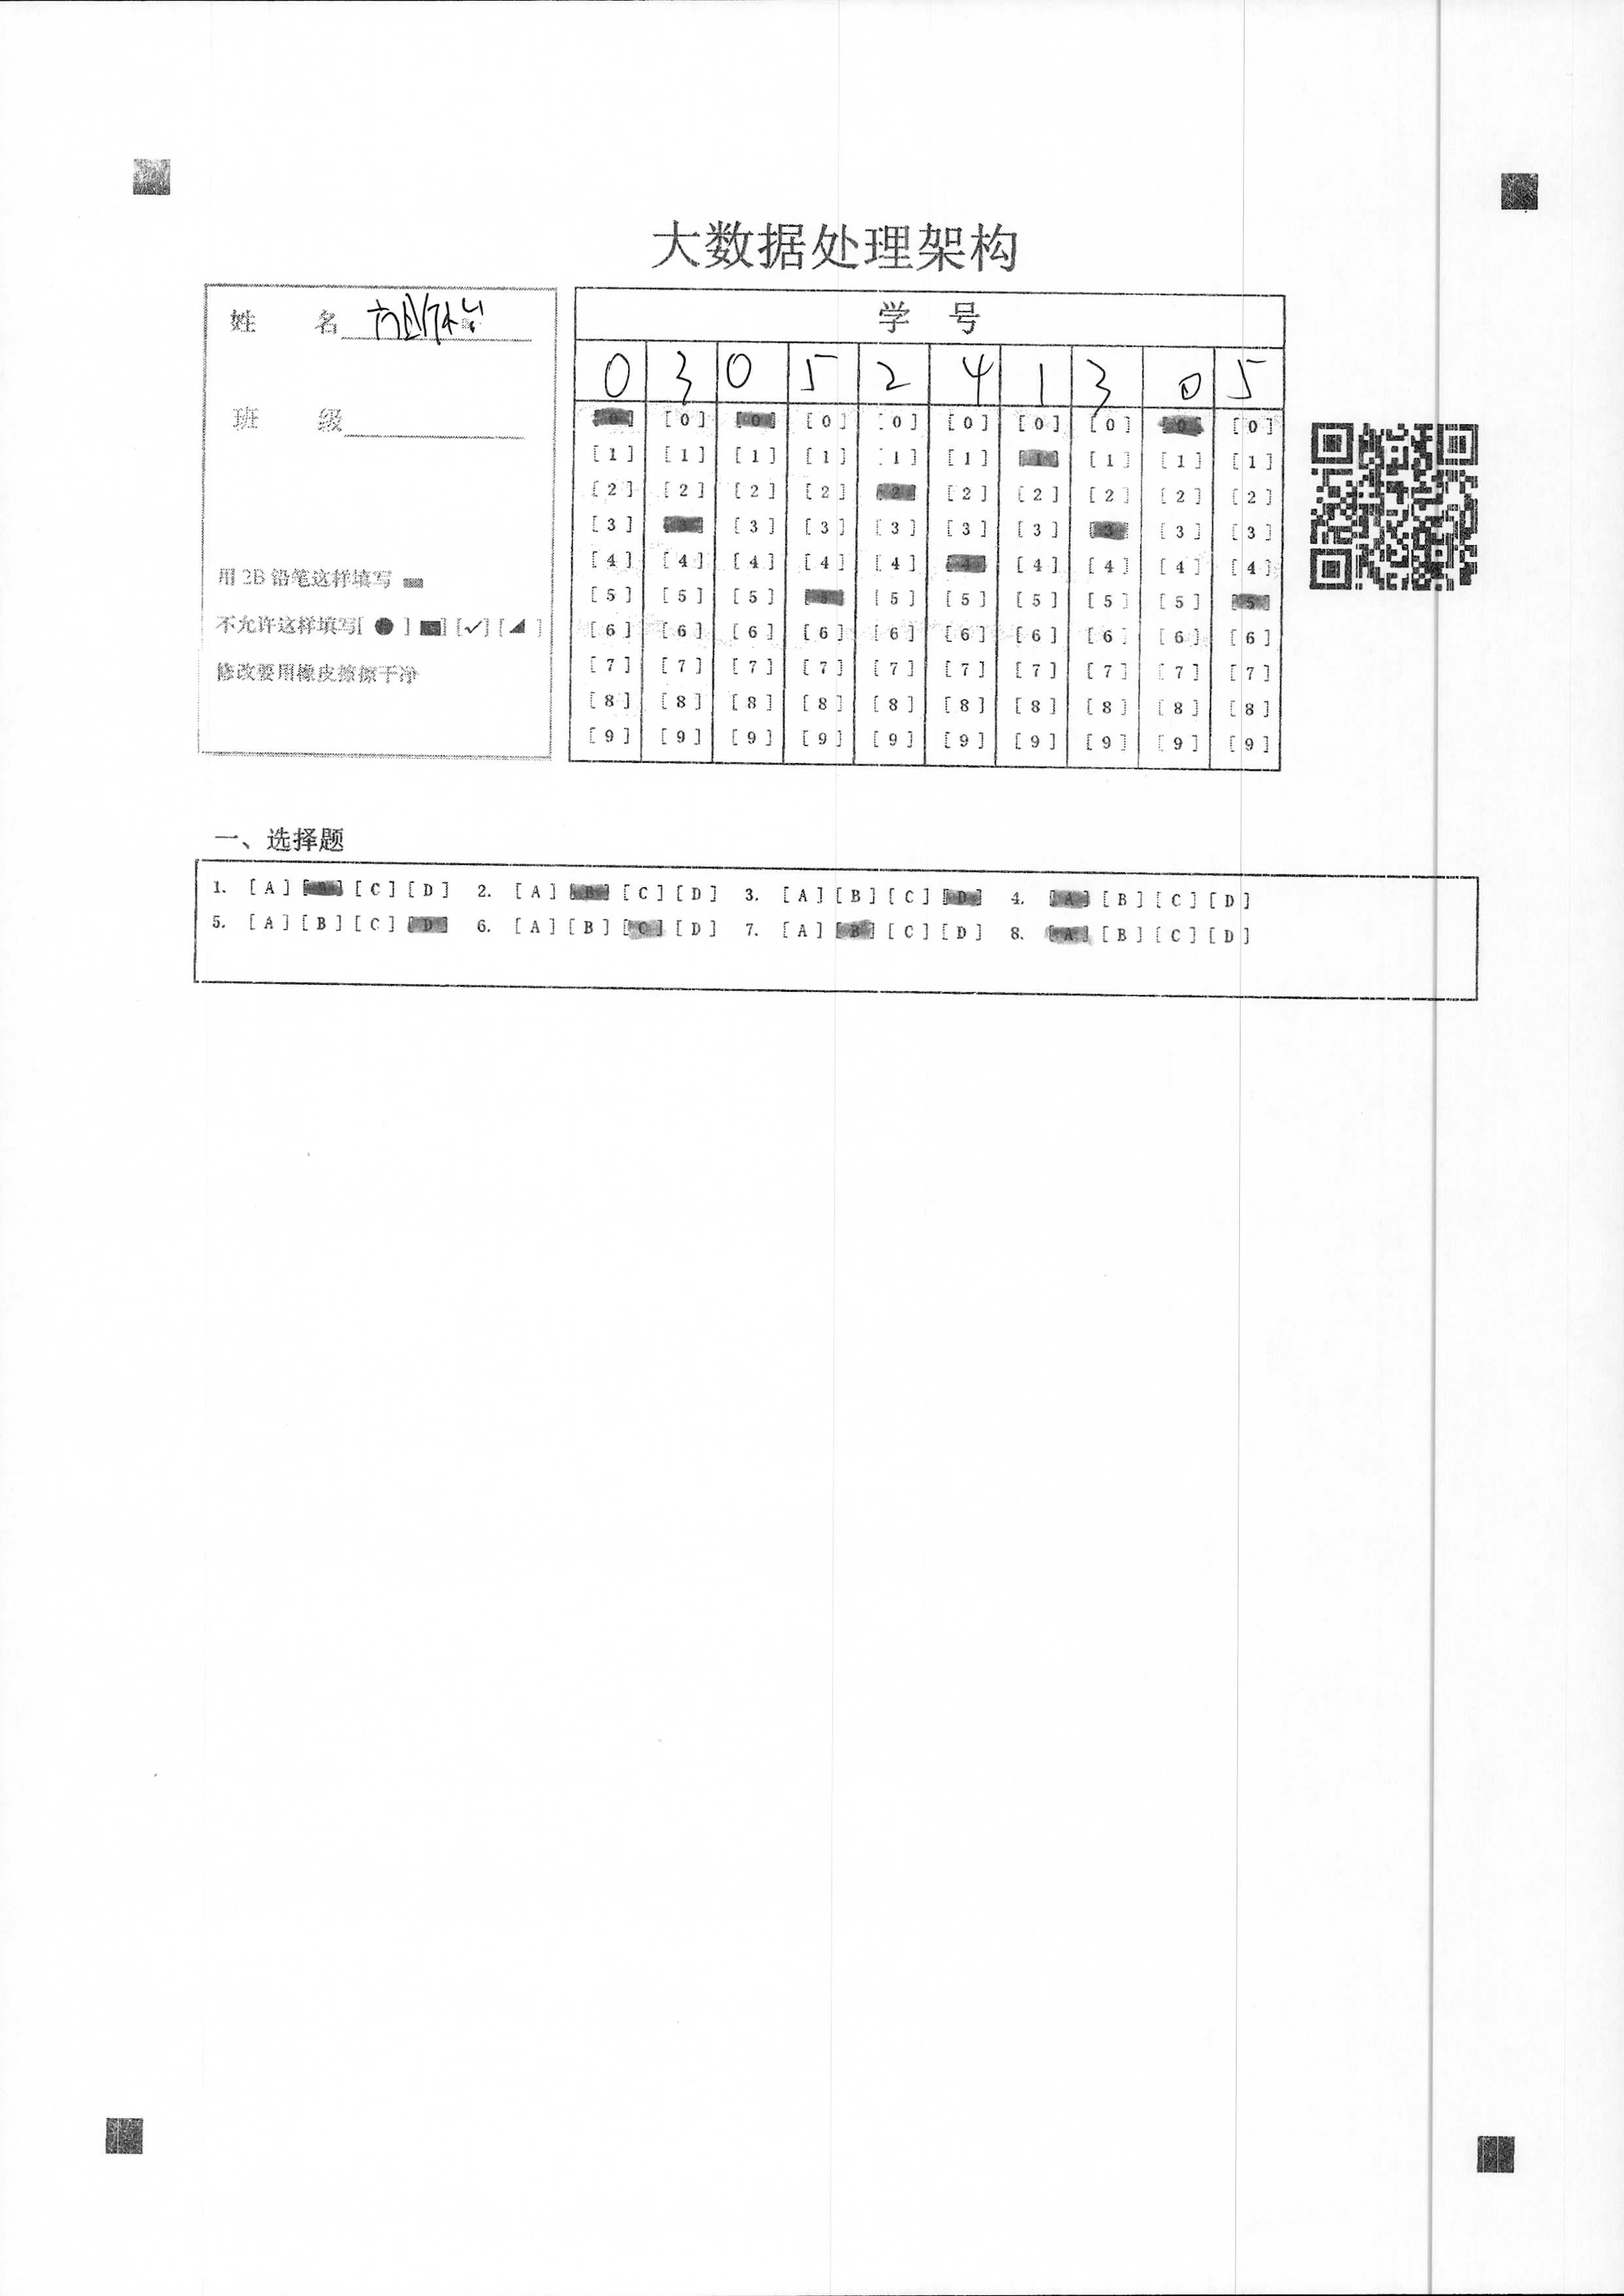 大数据处理架构
姓 名
班 级
用 2B 铅笔这样填写
不允许这样填写[ ● ] [■] [✓] [◢ ]
修改要用橡皮擦擦干净
学 号
0 3 0 5 2 4 1 3 0 5
[0] [0] [0] [0] [0] [0] [0] [0] [0] [0]
[1] [1] [1] [1] [1] [1] [1] [1] [1] [1]
[2] [2] [2] [2] [2] [2] [2] [2] [2] [2]
[3] [3] [3] [3] [3] [3] [3] [3] [3] [3]
[4] [4] [4] [4] [4] [4] [4] [4] [4] [4]
[5] [5] [5] [5] [5] [5] [5] [5] [5] [5]
[6] [6] [6] [6] [6] [6] [6] [6] [6] [6]
[7] [7] [7] [7] [7] [7] [7] [7] [7] [7]
[8] [8] [8] [8] [8] [8] [8] [8] [8] [8]
[9] [9] [9] [9] [9] [9] [9] [9] [9] [9]
一、选择题
1. [A] [B] [C] [D] 2. [A] [B] [C] [D] 3. [A] [B] [C] [D] 4. [A] [B] [C] [D]
5. [A] [B] [C] [D] 6. [A] [B] [C] [D] 7. [A] [B] [C] [D] 8. [A] [B] [C] [D]